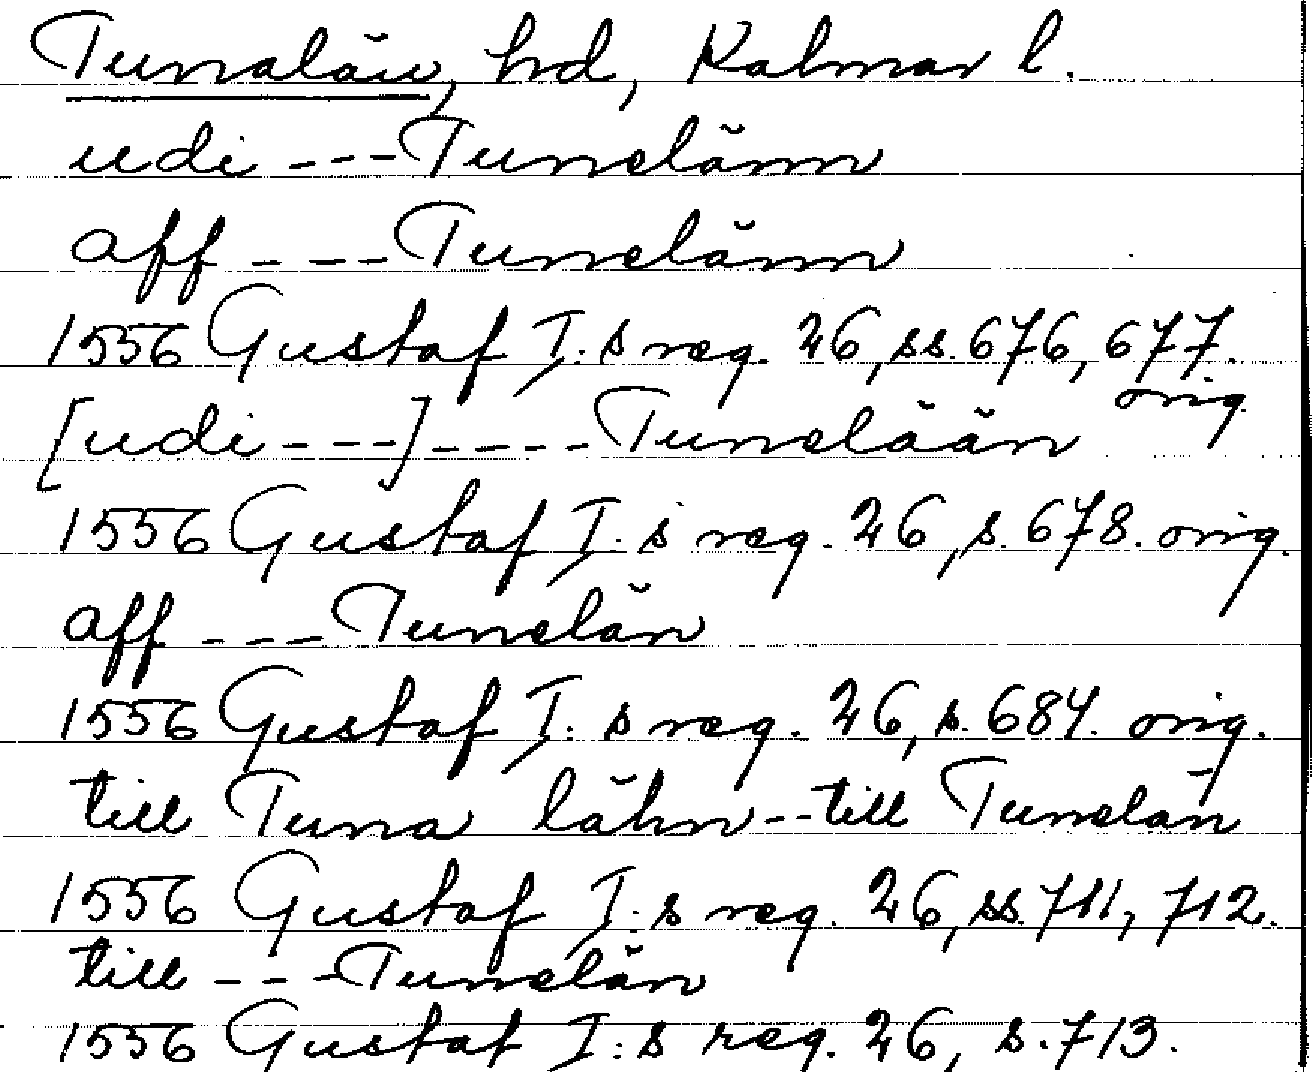 Tunalän, hd, Kalmar l.
udi --- Tunelänn
aff --- Tunelänn
1556 Gustaf I:s reg. 26, ss. 676, 677.
orig.
[udi ---] ---- Tunelään
1556 Gustaf I:s reg. 26, s. 678. orig.
aff --- Tunelän
1556 Gustaf I:s reg. 26, s. 684. orig.
till Tuna lähn -- till Tunelän
1556 Gustaf I:s reg. 26, ss. 711, 712.
till --- Tunelän
1556 Gustaf I:s reg. 26, s. 713.